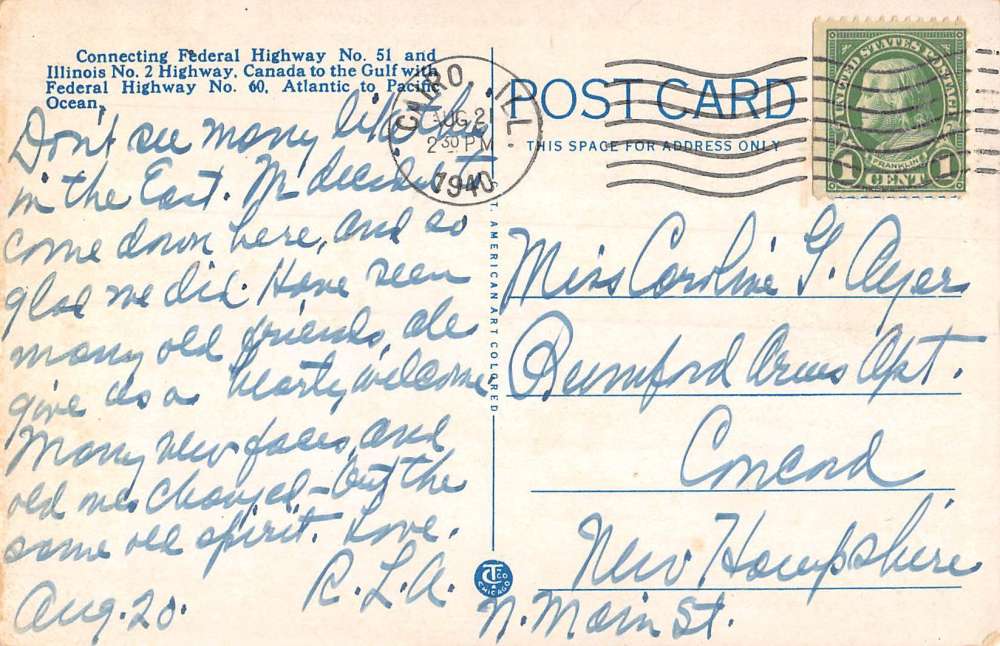 Connecting Federal Highway No. 51 and
Illinois No. 2 Highway, Canada to the Gulf with
Federal Highway No. 60, Atlantic to Pacific
Ocean.
Don't see many like this
in the East. We decided to
come down here, and so
glad we did. Have seen
many old friends, all
give us a hearty welcome
Many new faces, and
old ones changed - but the
same old spirit. Love.
R.L.A.
Aug. 20.
CAIRO, ILL.
AUG 21
2 30 PM
1940
POST CARD
THIS SPACE FOR ADDRESS ONLY
UNITED STATES POSTAGE
FRANKLIN
1 CENT 1
C. T. AMERICAN ART COLORED
Miss Caroline G. Ayer
Rumford Arms Apt.
Concord
New Hampshire
N. Main St.
CT CO
CHICAGO